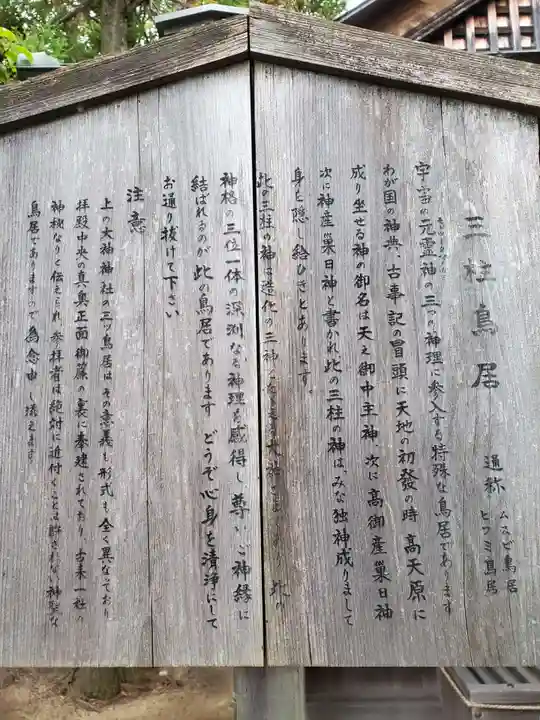 三柱鳥居
通称 ムスビ鳥居
ヒフミ鳥居
宇宙の元霊神の三つの神理に参入する特殊な鳥居であります
わが国の神典、古事記の冒頭に天地の初發の時高天原に
成り坐せる神の御名は天之御中主神、次に高御産巣日神
次に神産巣日神と書かれ此の三柱の神はみな独神成りまして
身を隠し給ひきとあります。
此の三柱の神は造化の三神 大神 此の
神格の三位一体の深渕なる神理を感得し尊いご神縁に
結ばれるのが此の鳥居であります どうぞ心身を清浄にして
お通り抜けて下さい
注意
上の大神神社の三ツ鳥居はその意義も形式も全く異なっており
拝殿中央の真奥正面御簾の裏に奉建されており、古来一社の
神秘なりと伝えられ参拝者は絶対に近付くことは許されない神聖な
鳥居でありますので為念申し添えます